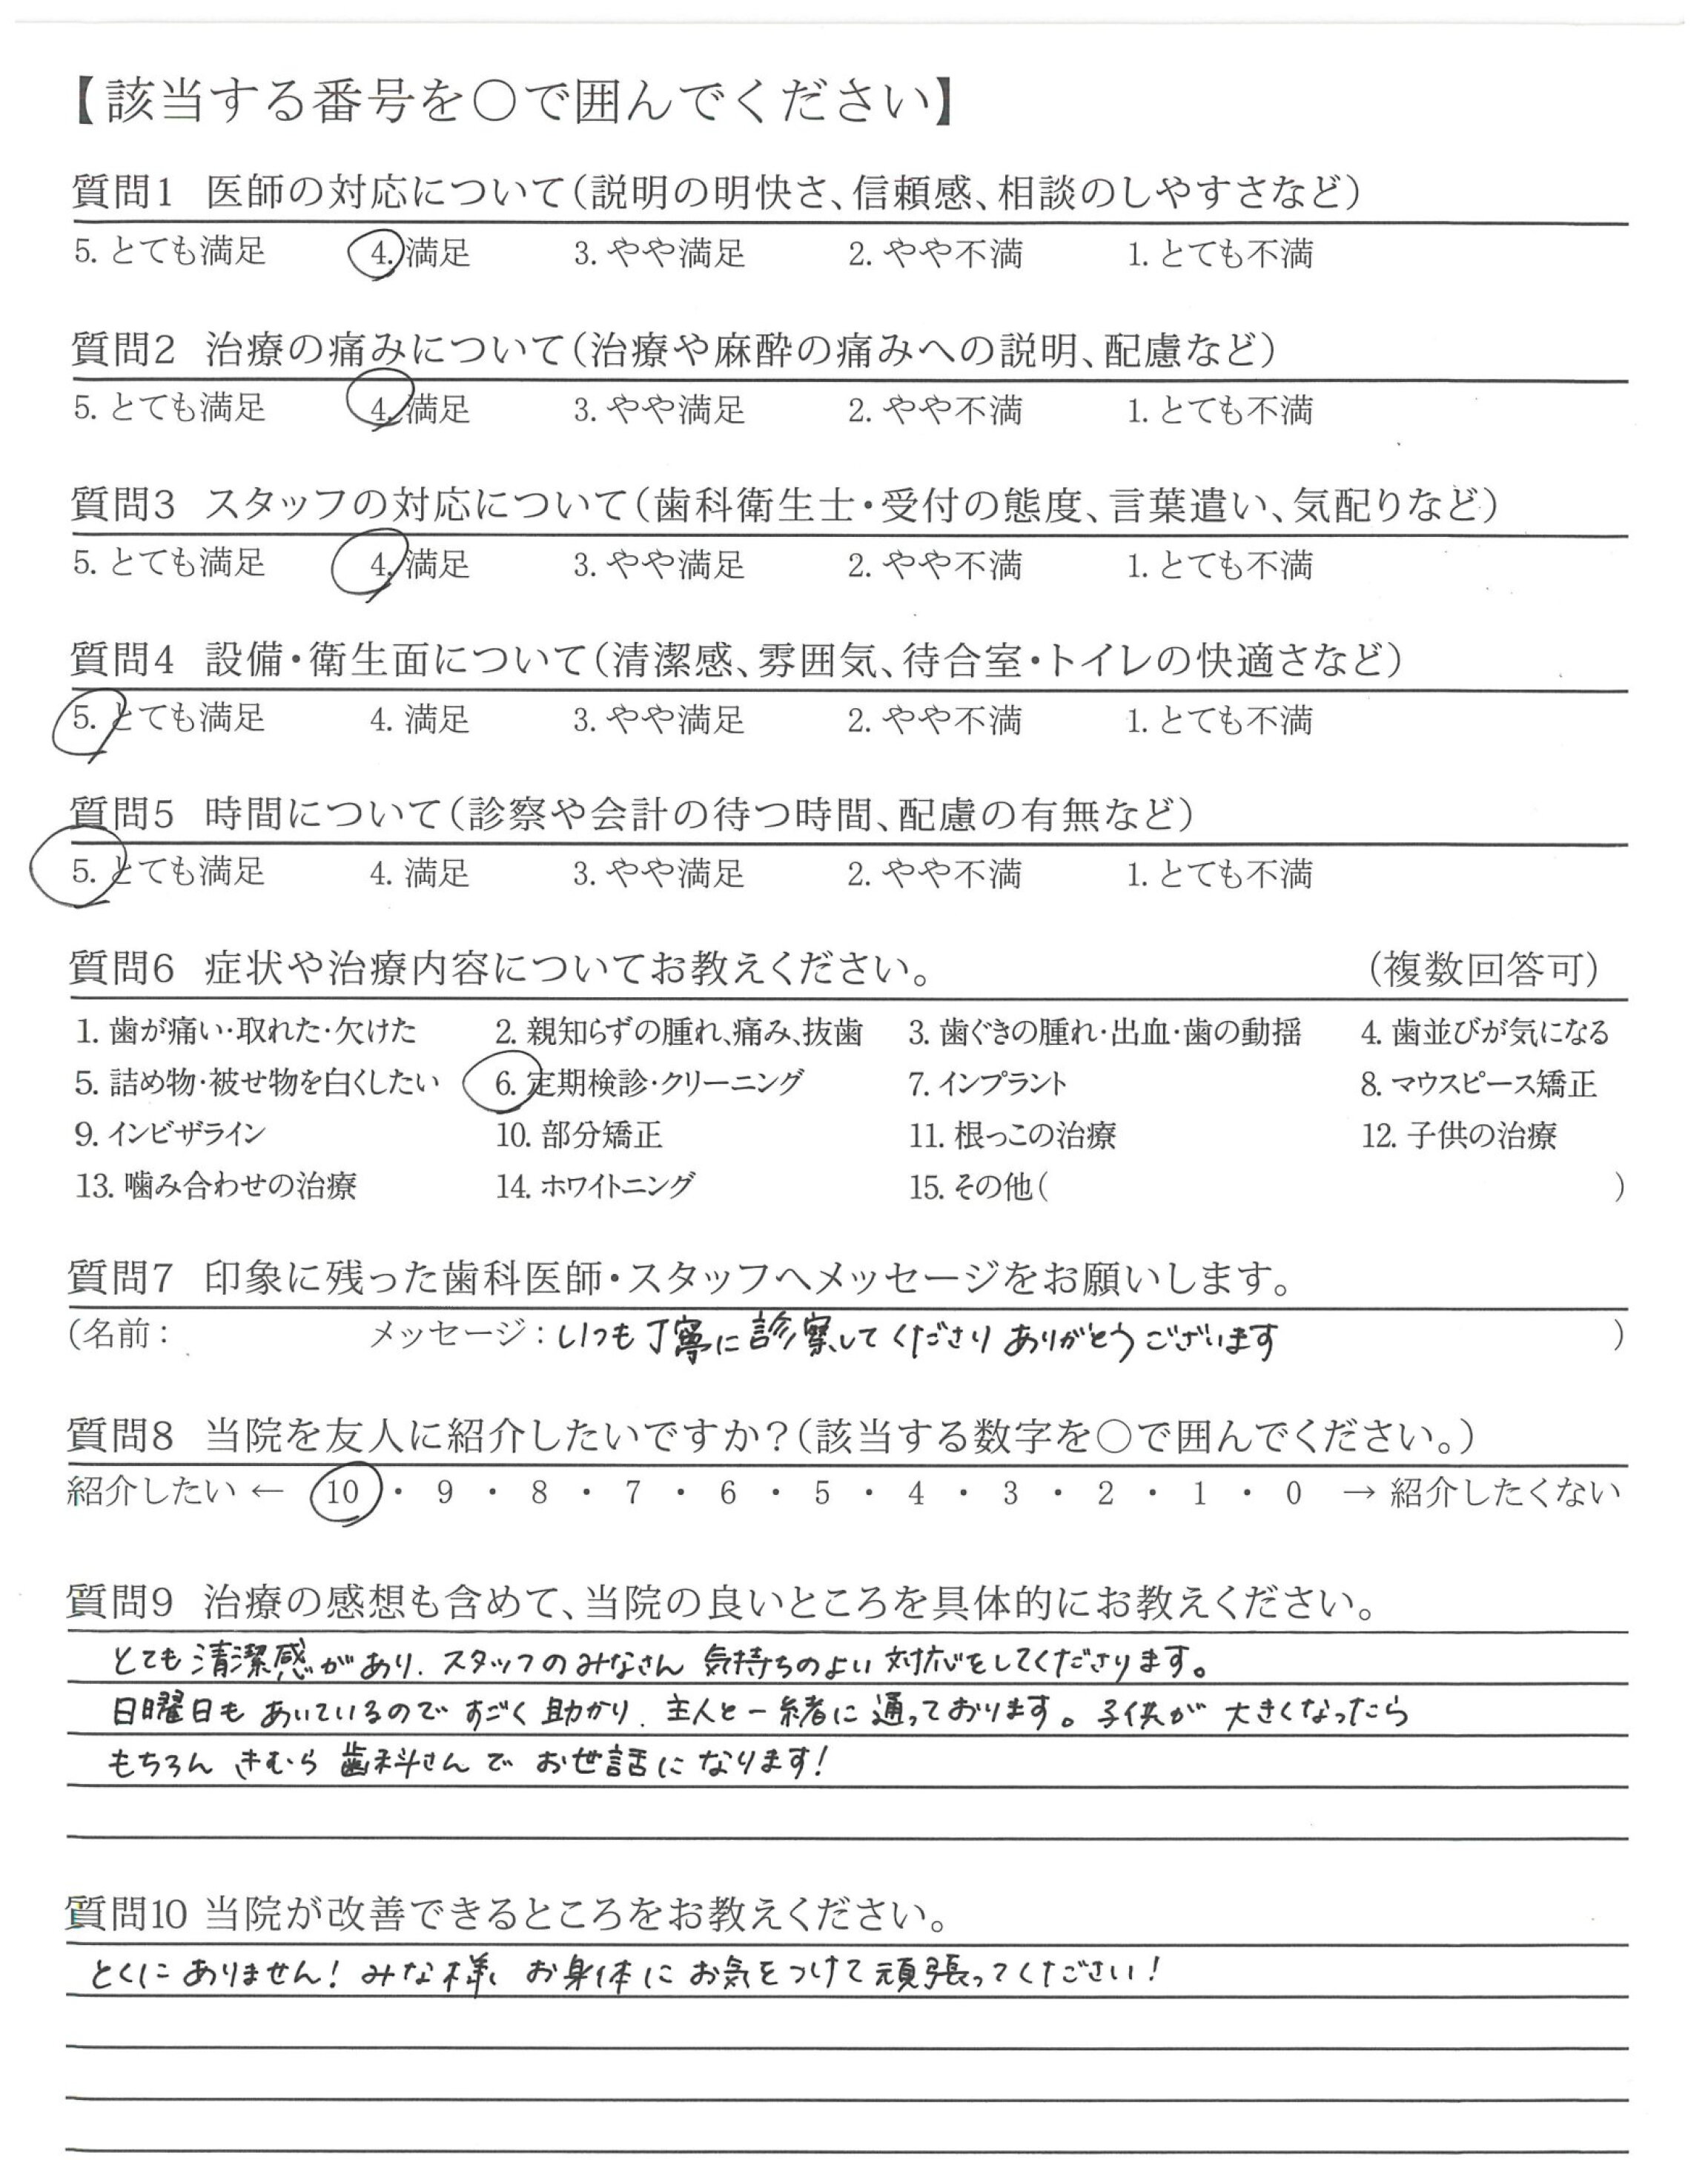 【該当する番号を〇で囲んでください】
質問1 医師の対応について(説明の明快さ、信頼感、相談のしやすさなど)
5. とても満足 4. 満足 3. やや満足 2. やや不満 1. とても不満
質問2 治療の痛みについて(治療や麻酔の痛みへの説明、配慮など)
5. とても満足 4. 満足 3. やや満足 2. やや不満 1. とても不満
質問3 スタッフの対応について(歯科衛生士・受付の態度、言葉遣い、気配りなど)
5. とても満足 4. 満足 3. やや満足 2. やや不満 1. とても不満
質問4 設備・衛生面について(清潔感、雰囲気、待合室・トイレの快適さなど)
5. とても満足 4. 満足 3. やや満足 2. やや不満 1. とても不満
質問5 時間について(診察や会計の待つ時間、配慮の有無など)
5. とても満足 4. 満足 3. やや満足 2. やや不満 1. とても不満
質問6 症状や治療内容についてお教えください。 (複数回答可)
1. 歯が痛い・取れた・欠けた 2. 親知らずの腫れ、痛み、抜歯 3. 歯ぐきの腫れ・出血・歯の動揺 4. 歯並びが気になる
5. 詰め物・被せ物を白くしたい 6. 定期検診・クリーニング 7. インプラント 8. マウスピース矯正
9. インビザライン 10. 部分矯正 11. 根っこの治療 12. 子供の治療
13. 噛み合わせの治療 14. ホワイトニング 15. その他( )
質問7 印象に残った歯科医師・スタッフへメッセージをお願いします。
(名前: メッセージ:いつも丁寧に診察してくださりありがとうございます )
質問8 当院を友人に紹介したいですか?(該当する数字を〇で囲んでください。)
紹介したい ← 10 ・ 9 ・ 8 ・ 7 ・ 6 ・ 5 ・ 4 ・ 3 ・ 2 ・ 1 ・ 0 → 紹介したくない
質問9 治療の感想も含めて、当院の良いところを具体的にお教えください。
とても清潔感があり、スタッフのみなさん気持ちのよい対応をしてくださります。
日曜日もあいているのですごく助かり、主人と一緒に通っております。子供が大きくなったら
もちろんきむら歯科さんでお世話になります!
質問10 当院が改善できるところをお教えください。
とくにありません!みな様、お身体にお気をつけて頑張ってください!